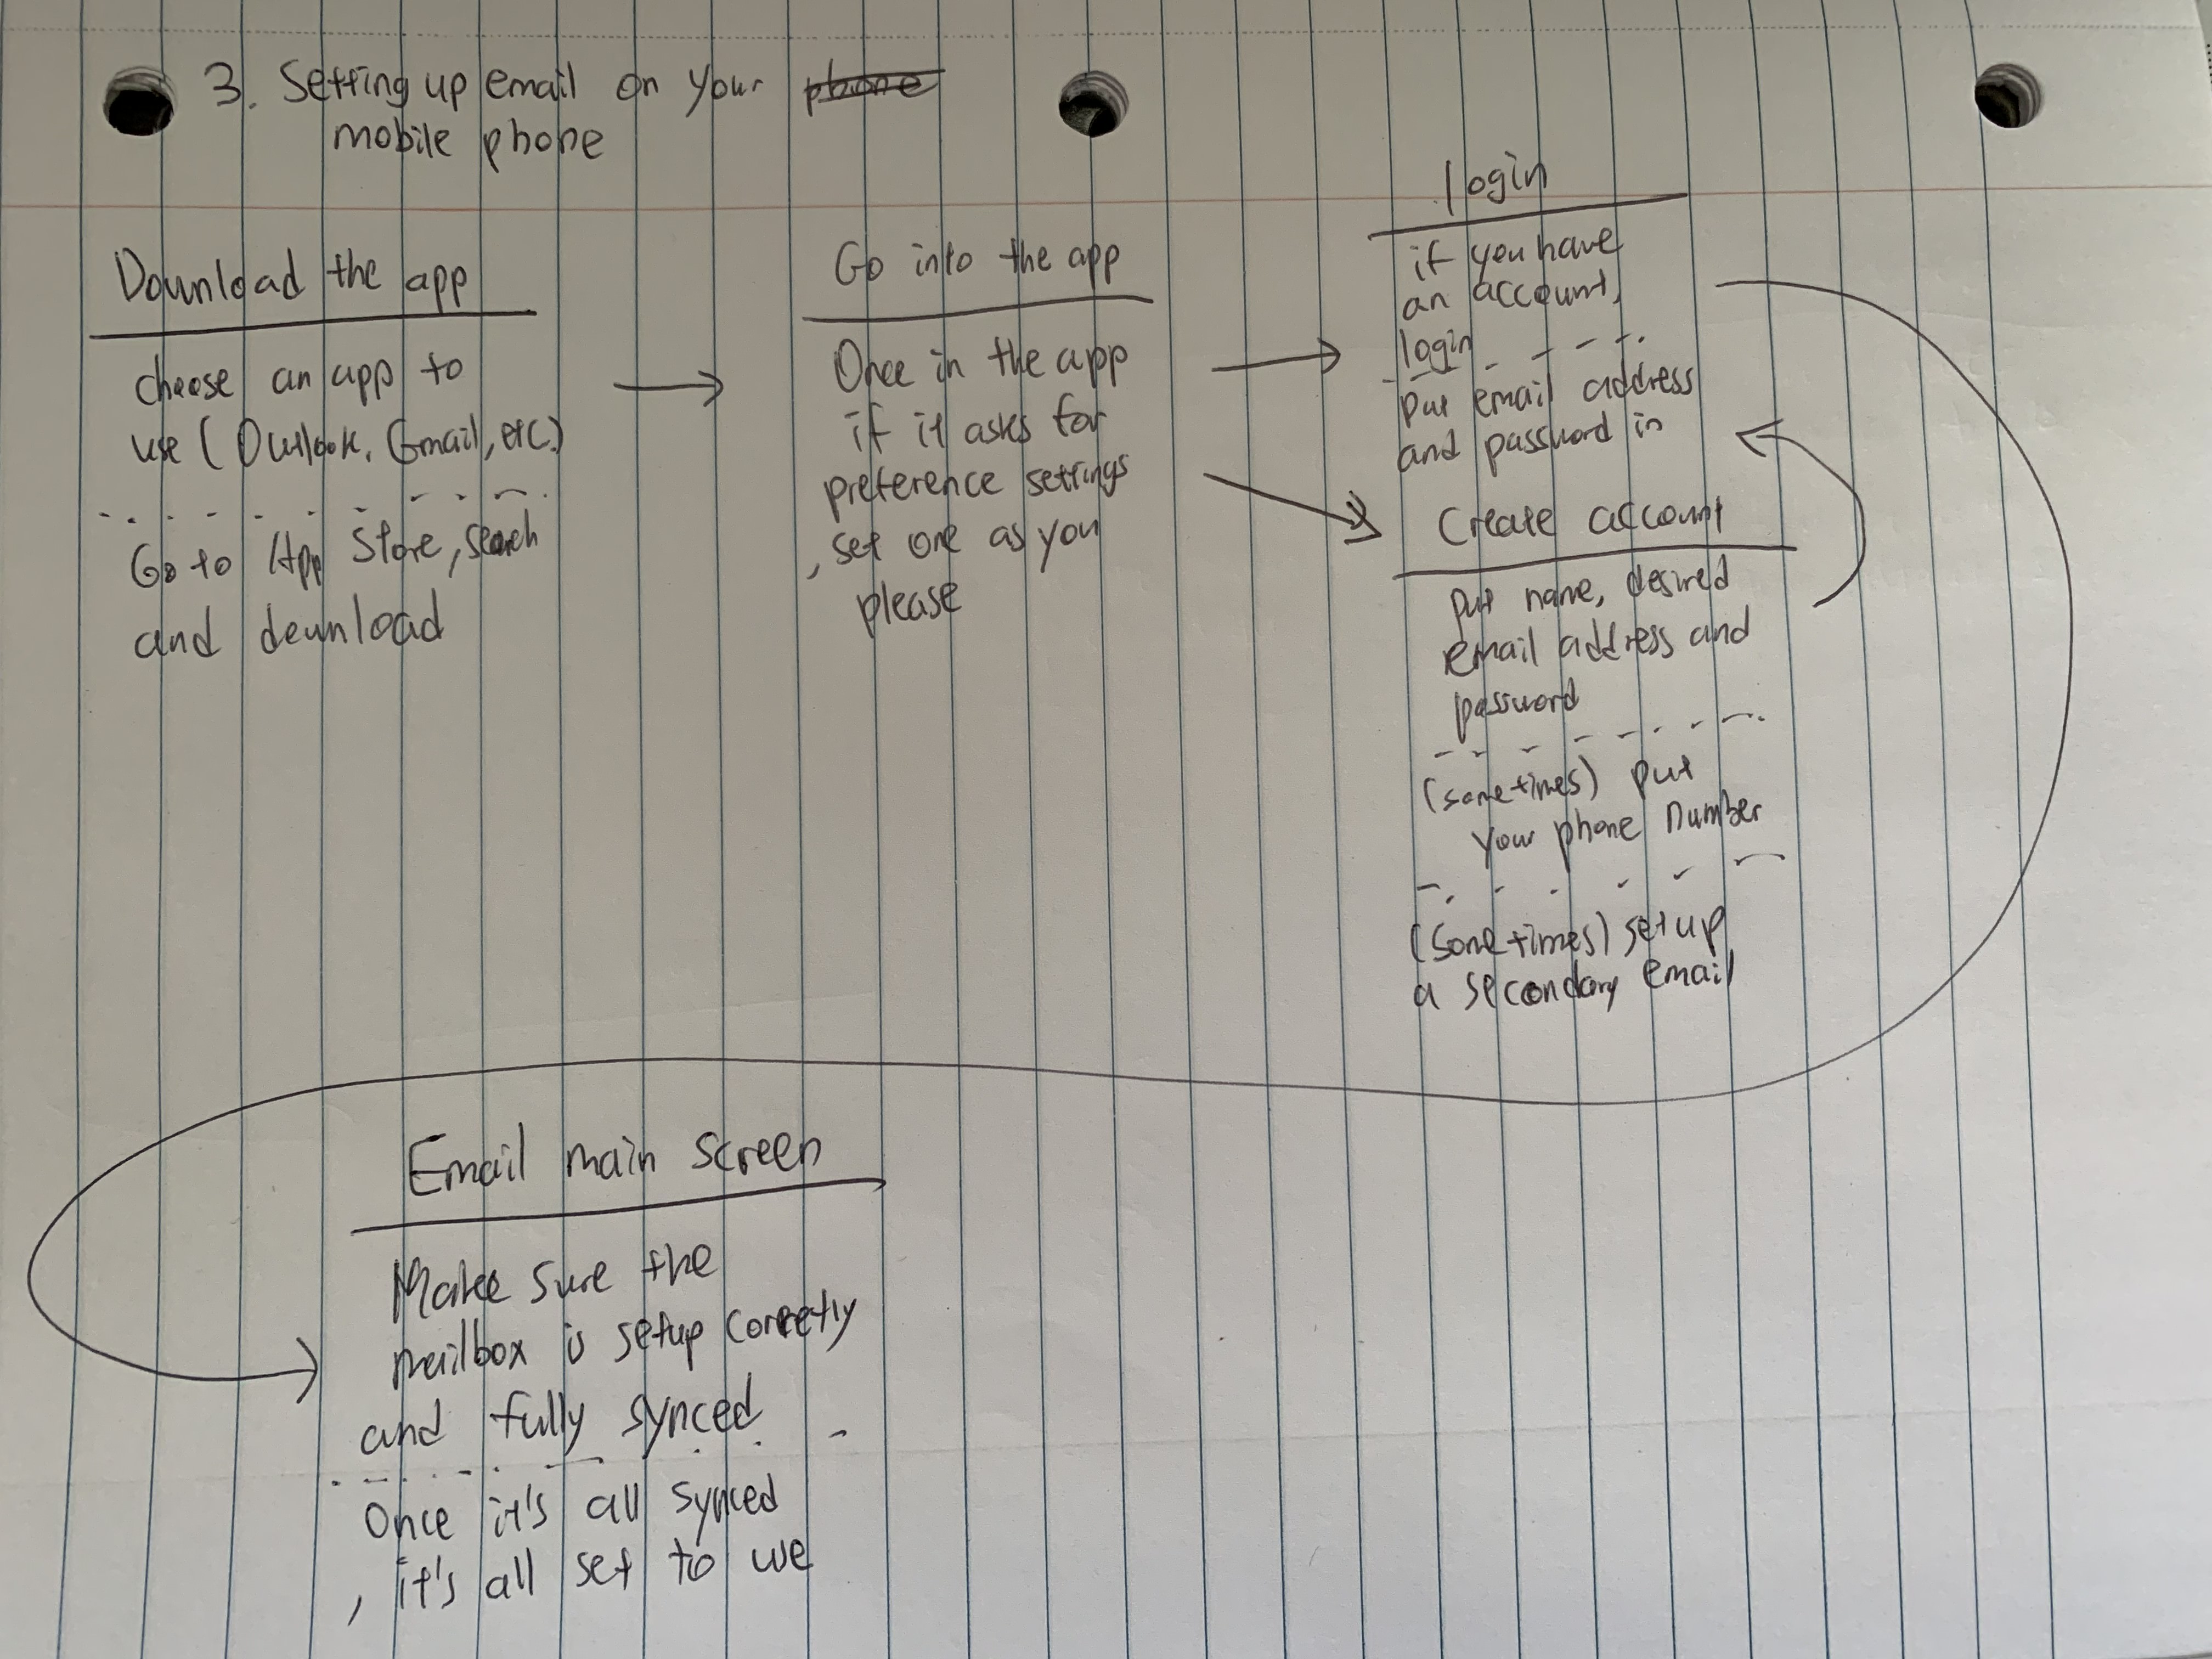 3. Setting up email on your phone
mobile phone
Download the app
choose an app to
use (Outlook, Gmail, etc.)
Go to App Store, search
and download
Go into the app
Once in the app
if it asks for
preference settings
, set one as you
please
login
if you have
an account,
login
put email address
and password in
Create account
put name, desired
email address and
password
(sometimes) put
your phone number
(sometimes) setup
a secondary email
Email main screen
Make sure the
mailbox is setup correctly
and fully synced
Once it's all synced
, it's all set to use